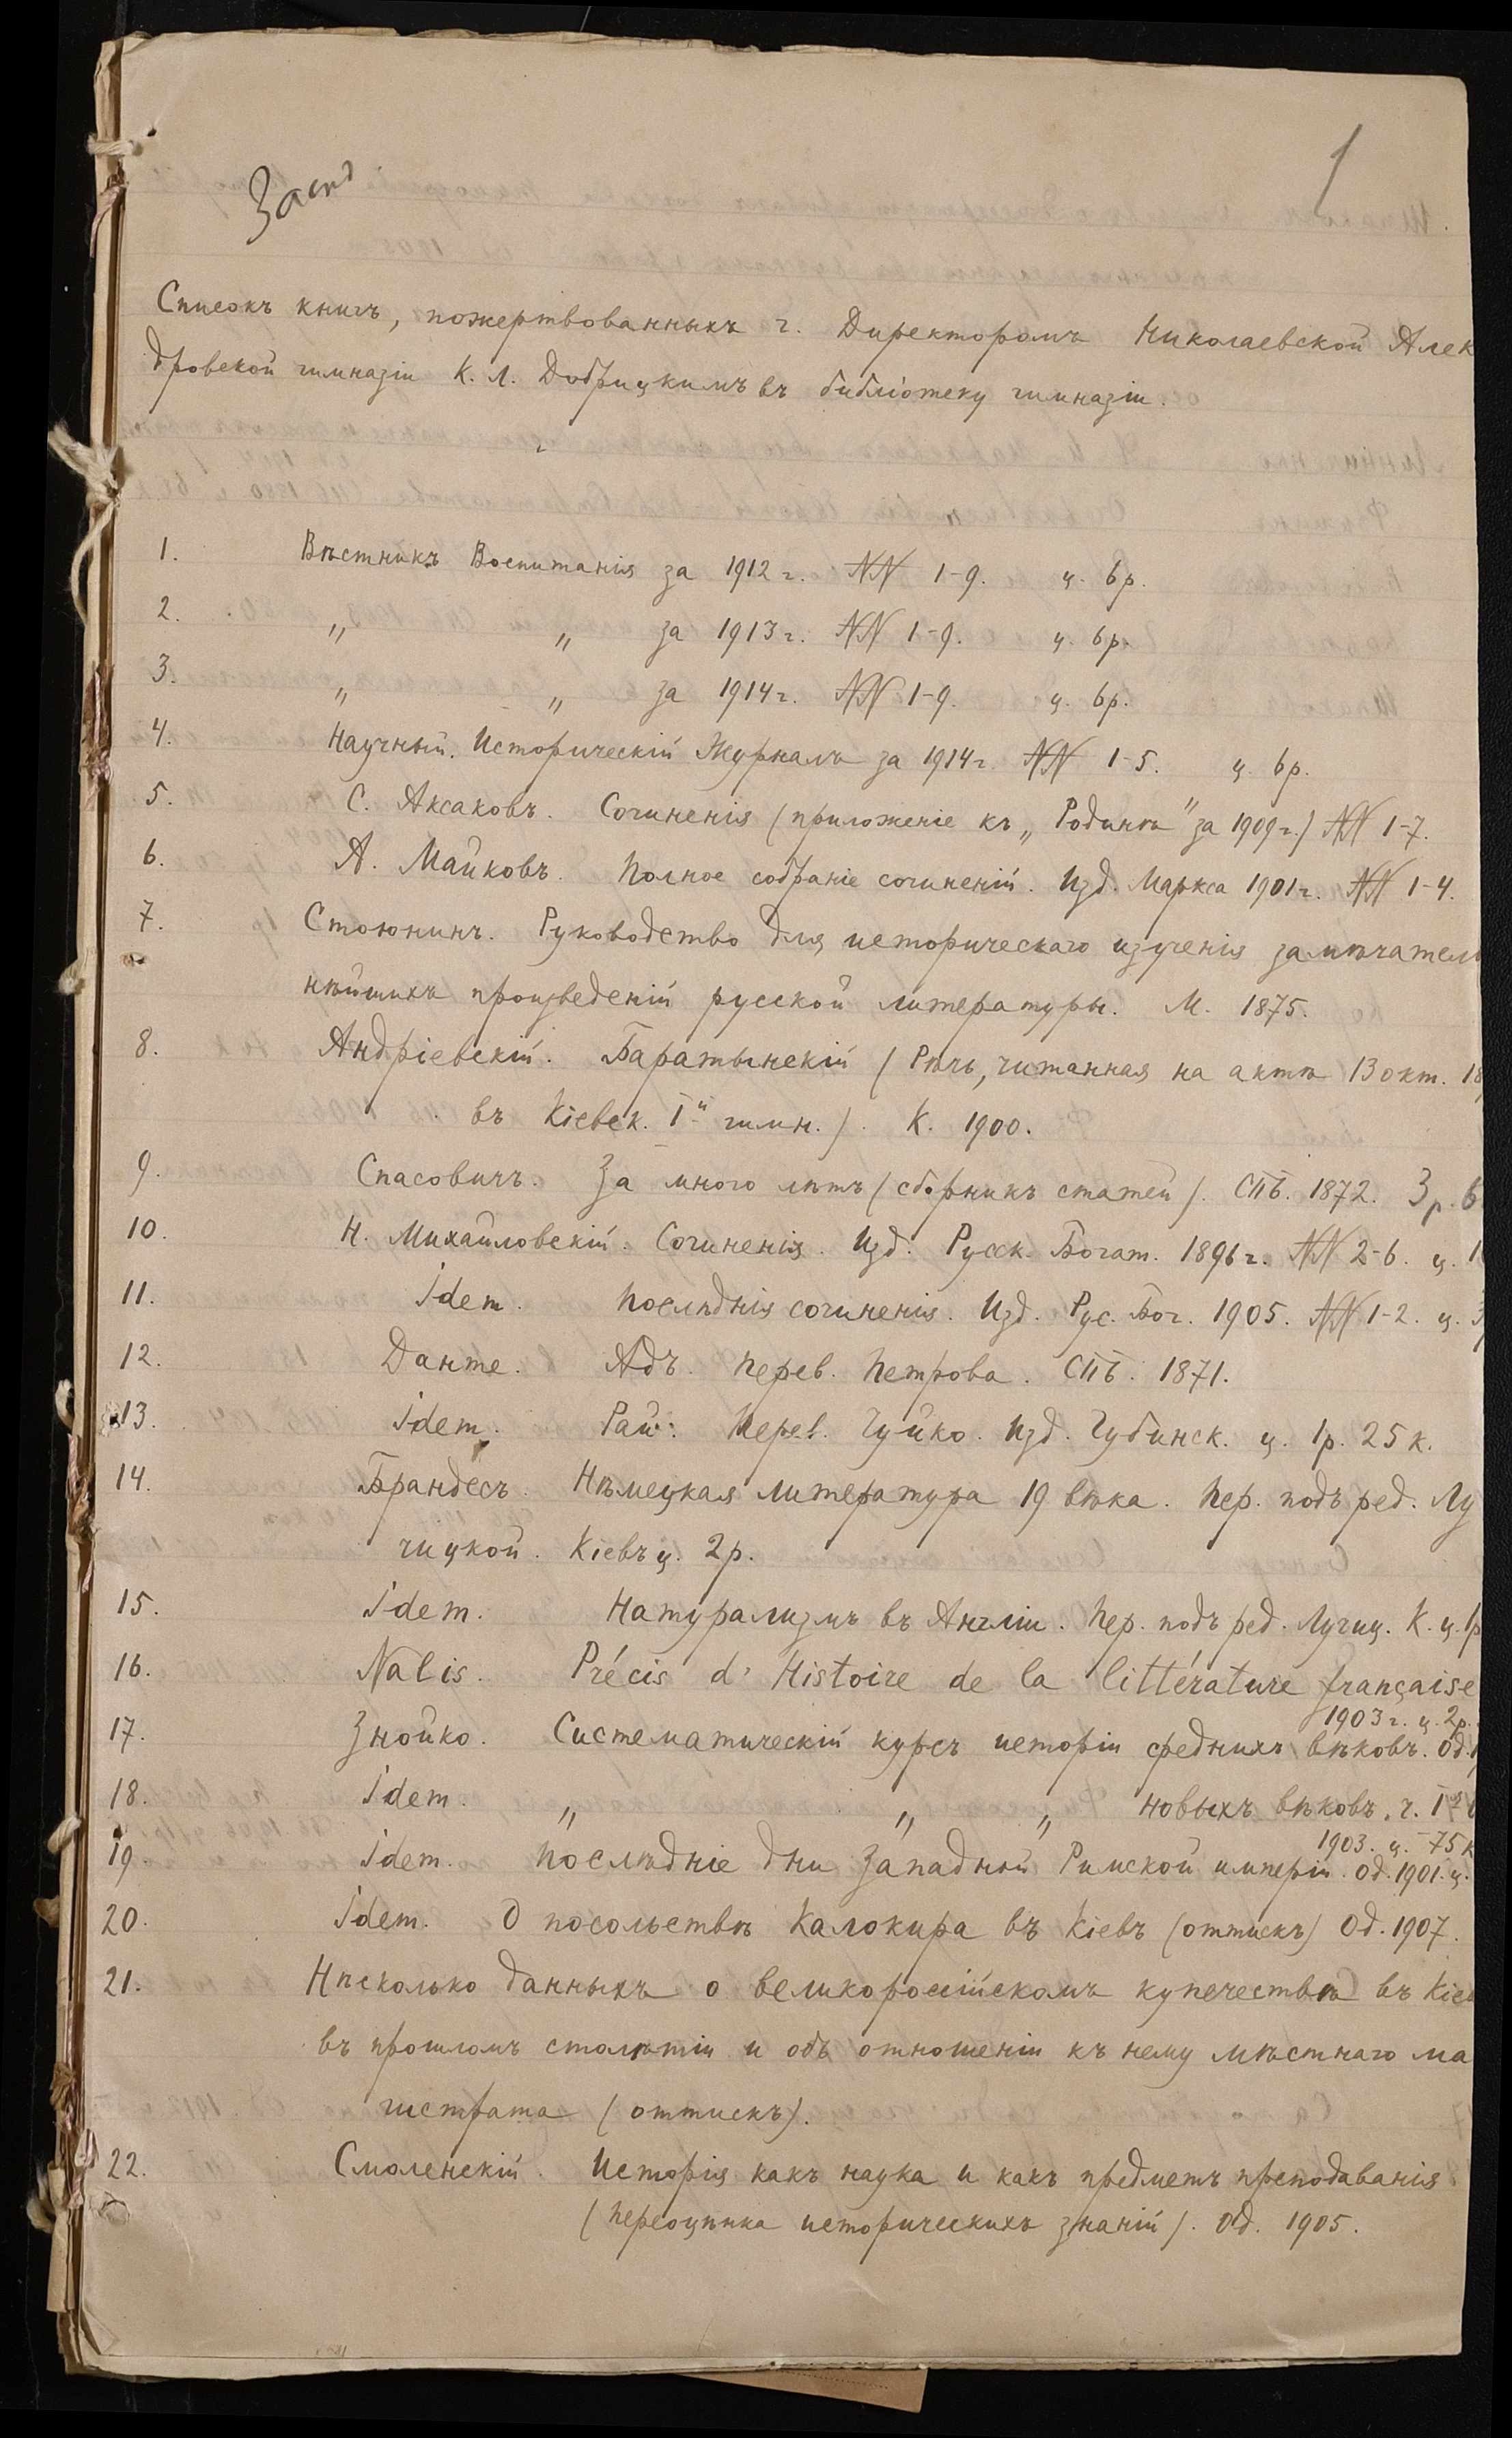 1
Списокъ книгъ, пожертвованныхъ г. Директоромъ Николаевской Алек
дровской гимназіи К. Л. Добрицкимъ въ библіотеку гимназіи.
1. Вѣстникъ Воспитанія за 1912 г. NN 1-9. ц. 6 р.
2. „ „ за 1913 г. NN 1-9. ц. 6 р.
3. „ „ за 1914 г. NN 1-9. ц. 6 р.
4. Научный. Историческій Журналъ за 1914 г. NN 1-5. ц. 6 р.
5. С. Аксаковъ. Сочиненія (приложеніе къ „Родинѣ" за 1909 г.) NN 1-7.
6. А. Майковъ. Полное собраніе сочиненій. Изд. Маркса 1901 г. NN 1-4.
7. Стоюнинъ. Руководство для историческаго изученія замѣчатель
нѣйшихъ произведеній русской литературы. М. 1875.
8. Андріевскій. Баратынскій (Рѣчь, читанная на актѣ 13 окт. 18
въ Кіевск. Iй гимн.). К. 1900.
9. Спасовичъ. За много лѣтъ (сборникъ статей). СПБ. 1872. 3 р. 6
10. Н. Михайловскій. Сочиненія. Изд. Русск. Богат. 1896 г. NN 2-6. ц. 1
11. Idem. Послѣднія сочиненія. Изд. Рус. Бог. 1905. NN 1-2. ц. 3
12. Данте. Адъ. Перев. Петрова. СПБ. 1871.
13. Idem. Рай. Перев. Чуйко. Изд. Губинск. ц. 1 р. 25 к.
14. Брандесъ. Нѣмецкая литература 19 вѣка. Пер. подъ ред. Лу
чицкой. Кіевъ ц. 2 р.
15. Idem. Натурализмъ въ Англіи. Пер. подъ ред. Лучиц. К. ц. 1 р
16. Nalis. Précis d'Histoire de la littérature française
1903 г. ц. 2 р.
17. Знойко. Систематическій курсъ исторіи среднихъ вѣковъ. Од.
18. Idem. „ „ „ новыхъ вѣковъ. ч. I
1903. ц. 75 к
19. Idem. Послѣдніе дни Западной Римской имперіи. Од. 1901. ц.
20. Idem. О посольствѣ Калокира въ Кіевъ (оттискъ) Од. 1907.
21. Нѣсколько данныхъ о великороссійскомъ купечествѣ въ Кіев
въ прошломъ столѣтіи и объ отношеніи къ нему мѣстнаго ма
гистрата (оттискъ).
22. Смоленскій. Исторія какъ наука и какъ предметъ преподаванія
(Переоцѣнка историческихъ знаній). Од. 1905.